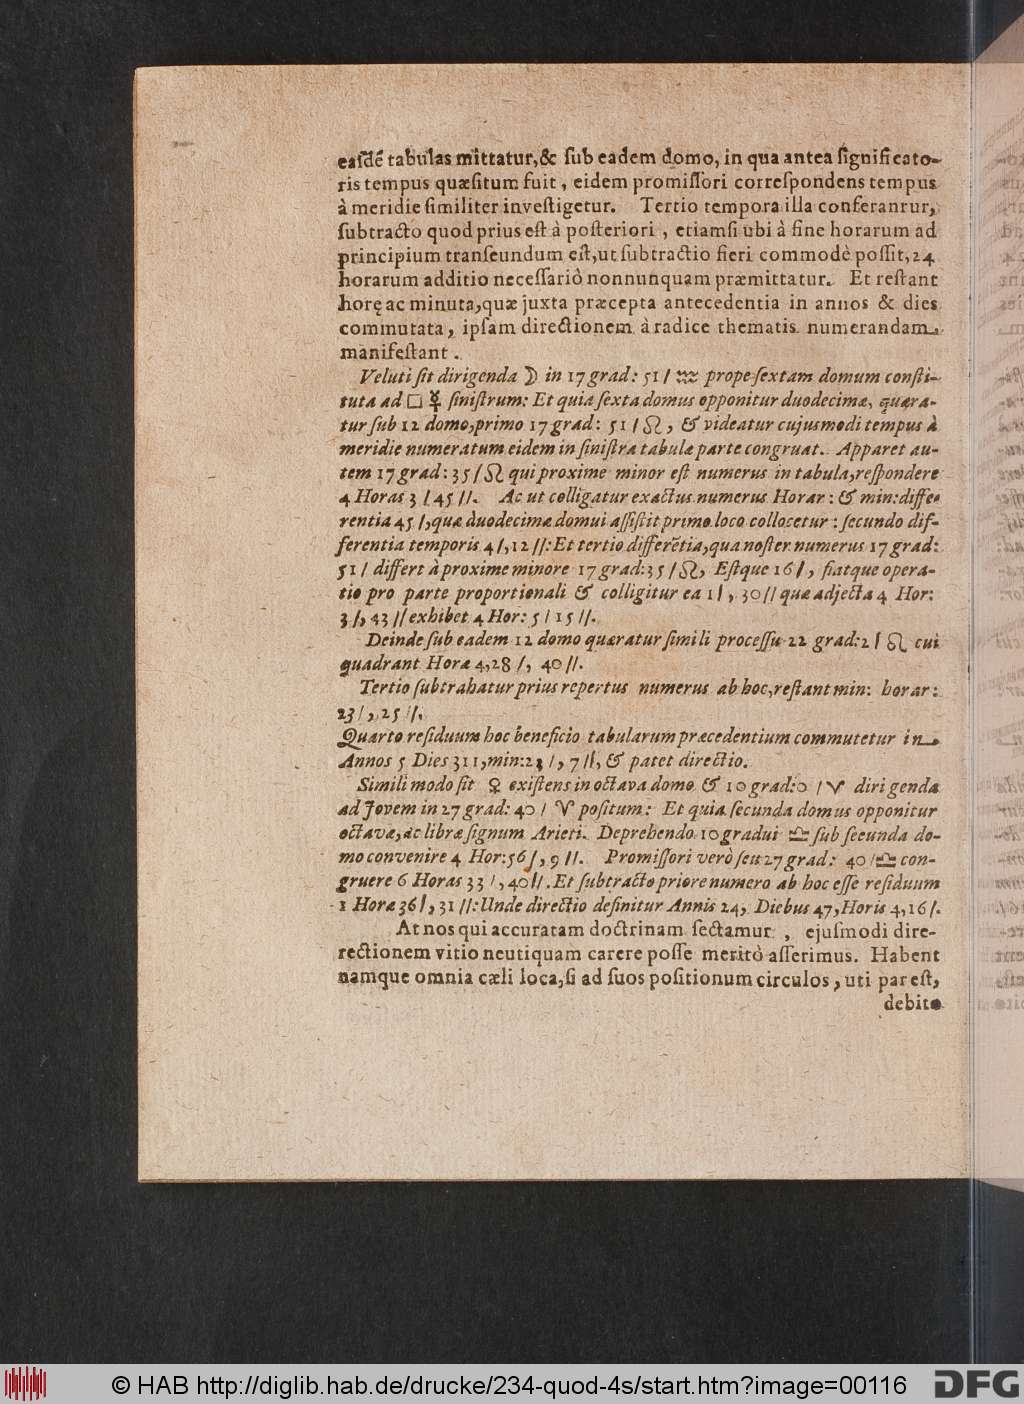 easdē tabulas mittatur,& ſub eadem domo, in qua antea ſignificato-
ris tempus quæſitum fuit, eidem promiſſori correſpondens tempus
à meridie ſimiliter inveſtigetur. Tertio tempora illa conferanrur,
ſubtracto quod prius eſt à poſteriori, etiamſi ubi à fine horarum ad
principium tranſeundum eſt, ut ſubtractio fieri commodè poſſit, 24
horarum additio neceſſariò nonnunquam præmittatur. Et reſtant
horę ac minuta, quæ juxta præcepta antecedentia in annos & dies
commutata, ipſam directionem à radice thematis numerandam
manifeſtant.
Veluti ſit dirigenda ☽ in 17 grad: 51 / ♒ prope ſextam domum conſti-
tuta ad □ ☿ ſiniſtrum: Et quia ſexta domus opponitur duodecimæ, quæra-
tur ſub 12 domo, primo 17 grad: 51 / ♌, & videatur cujusmodi tempus à
meridie numeratum eidem in ſiniſtra tabulæ parte congruat. Apparet au-
tem 17 grad: 35 / ♌ qui proxime minor eſt numerus in tabula, reſpondere
4 Horas 3 / 45 //. Ac ut colligatur exactus numerus Horar: & min: differ
rentia 45 /, quæ duodecimæ domui aſſiſtit primo loco collocetur: ſecundo dif-
ferentia temporis 4 /, 12 //: Et tertio differētia, qua noſter numerus 17 grad:
51 / differt à proxime minore 17 grad: 35 / ♌, Eſtque 16 /, fiatque opera-
tio pro parte proportionali & colligitur ea 1 /, 30 // quæ adjecta 4 Hor:
3 /, 43 // exhibet 4 Hor: 5 / 15 //.
Deinde ſub eadem 12 domo quæratur ſimili proceſſu 22 grad: 2 / ♌ cui
quadrant Horæ 4, 28 /, 40 //.
Tertio ſubtrahatur prius repertus numerus ab hoc, reſtant min: horar:
23 /, 25 //.
Quarto reſiduum hoc beneficio tabularum præcedentium commutetur in
Annos 5 Dies 311, min: 23 /, 7 //, & patet directio.
Simili modo ſit ♀ exiſtens in octava domo & 10 grad: 0 / ♈ dirigenda
ad Jovem in 27 grad: 40 / ♈ poſitum: Et quia ſecunda domus opponitur
octavæ, ac libræ ſignum Arieti. Deprehendo 10 gradui ♎ ſub ſecunda do-
mo convenire 4 Hor: 56 /, 9 //. Promiſſori verò ſeu 27 grad: 40 / ♎ con-
gruere 6 Horas 33 /, 40 //. Et ſubtracto priore numero ab hoc eſſe reſiduum
1 Horæ 36 /, 31 //: Unde directio definitur Annis 24, Diebus 47, Horis 4, 16 /.
At nos qui accuratam doctrinam ſectamur, ejuſmodi dire-
rectionem vitio neutiquam carere poſſe meritò aſſerimus. Habent
namque omnia cæli loca, ſi ad ſuos poſitionum circulos, uti par eſt,
debito
© HAB http://diglib.hab.de/drucke/234-quod-4s/start.htm?image=00116
DFG